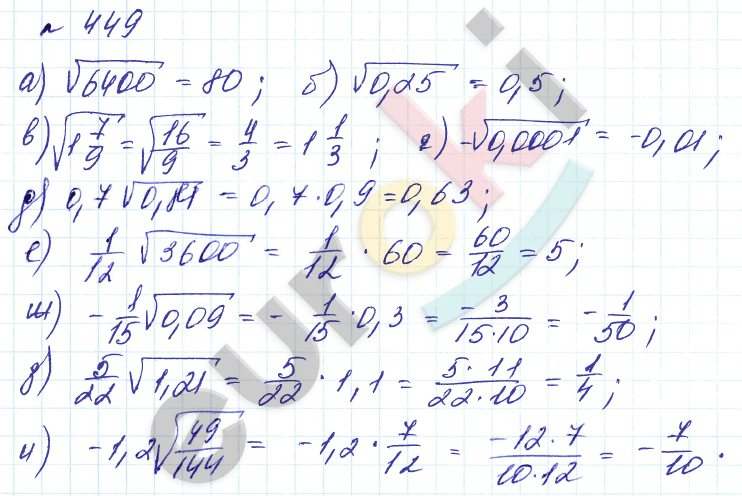 № 449
а) √6400 = 80; б) √0,25 = 0,5;
в) √1 7/9 = √16/9 = 4/3 = 1 1/3; г) -√0,0001 = -0,01;
д) 0,7 √0,81 = 0,7·0,9 = 0,63;
е) 1/12 √3600 = 1/12 · 60 = 60/12 = 5;
ж) - 1/15 √0,09 = - 1/15 · 0,3 = - 3/15·10 = - 1/50;
з) 5/22 √1,21 = 5/22 · 1,1 = 5·11/22·10 = 1/4;
и) -1,2 √49/144 = -1,2 · 7/12 = -12·7/10·12 = - 7/10.
euroki